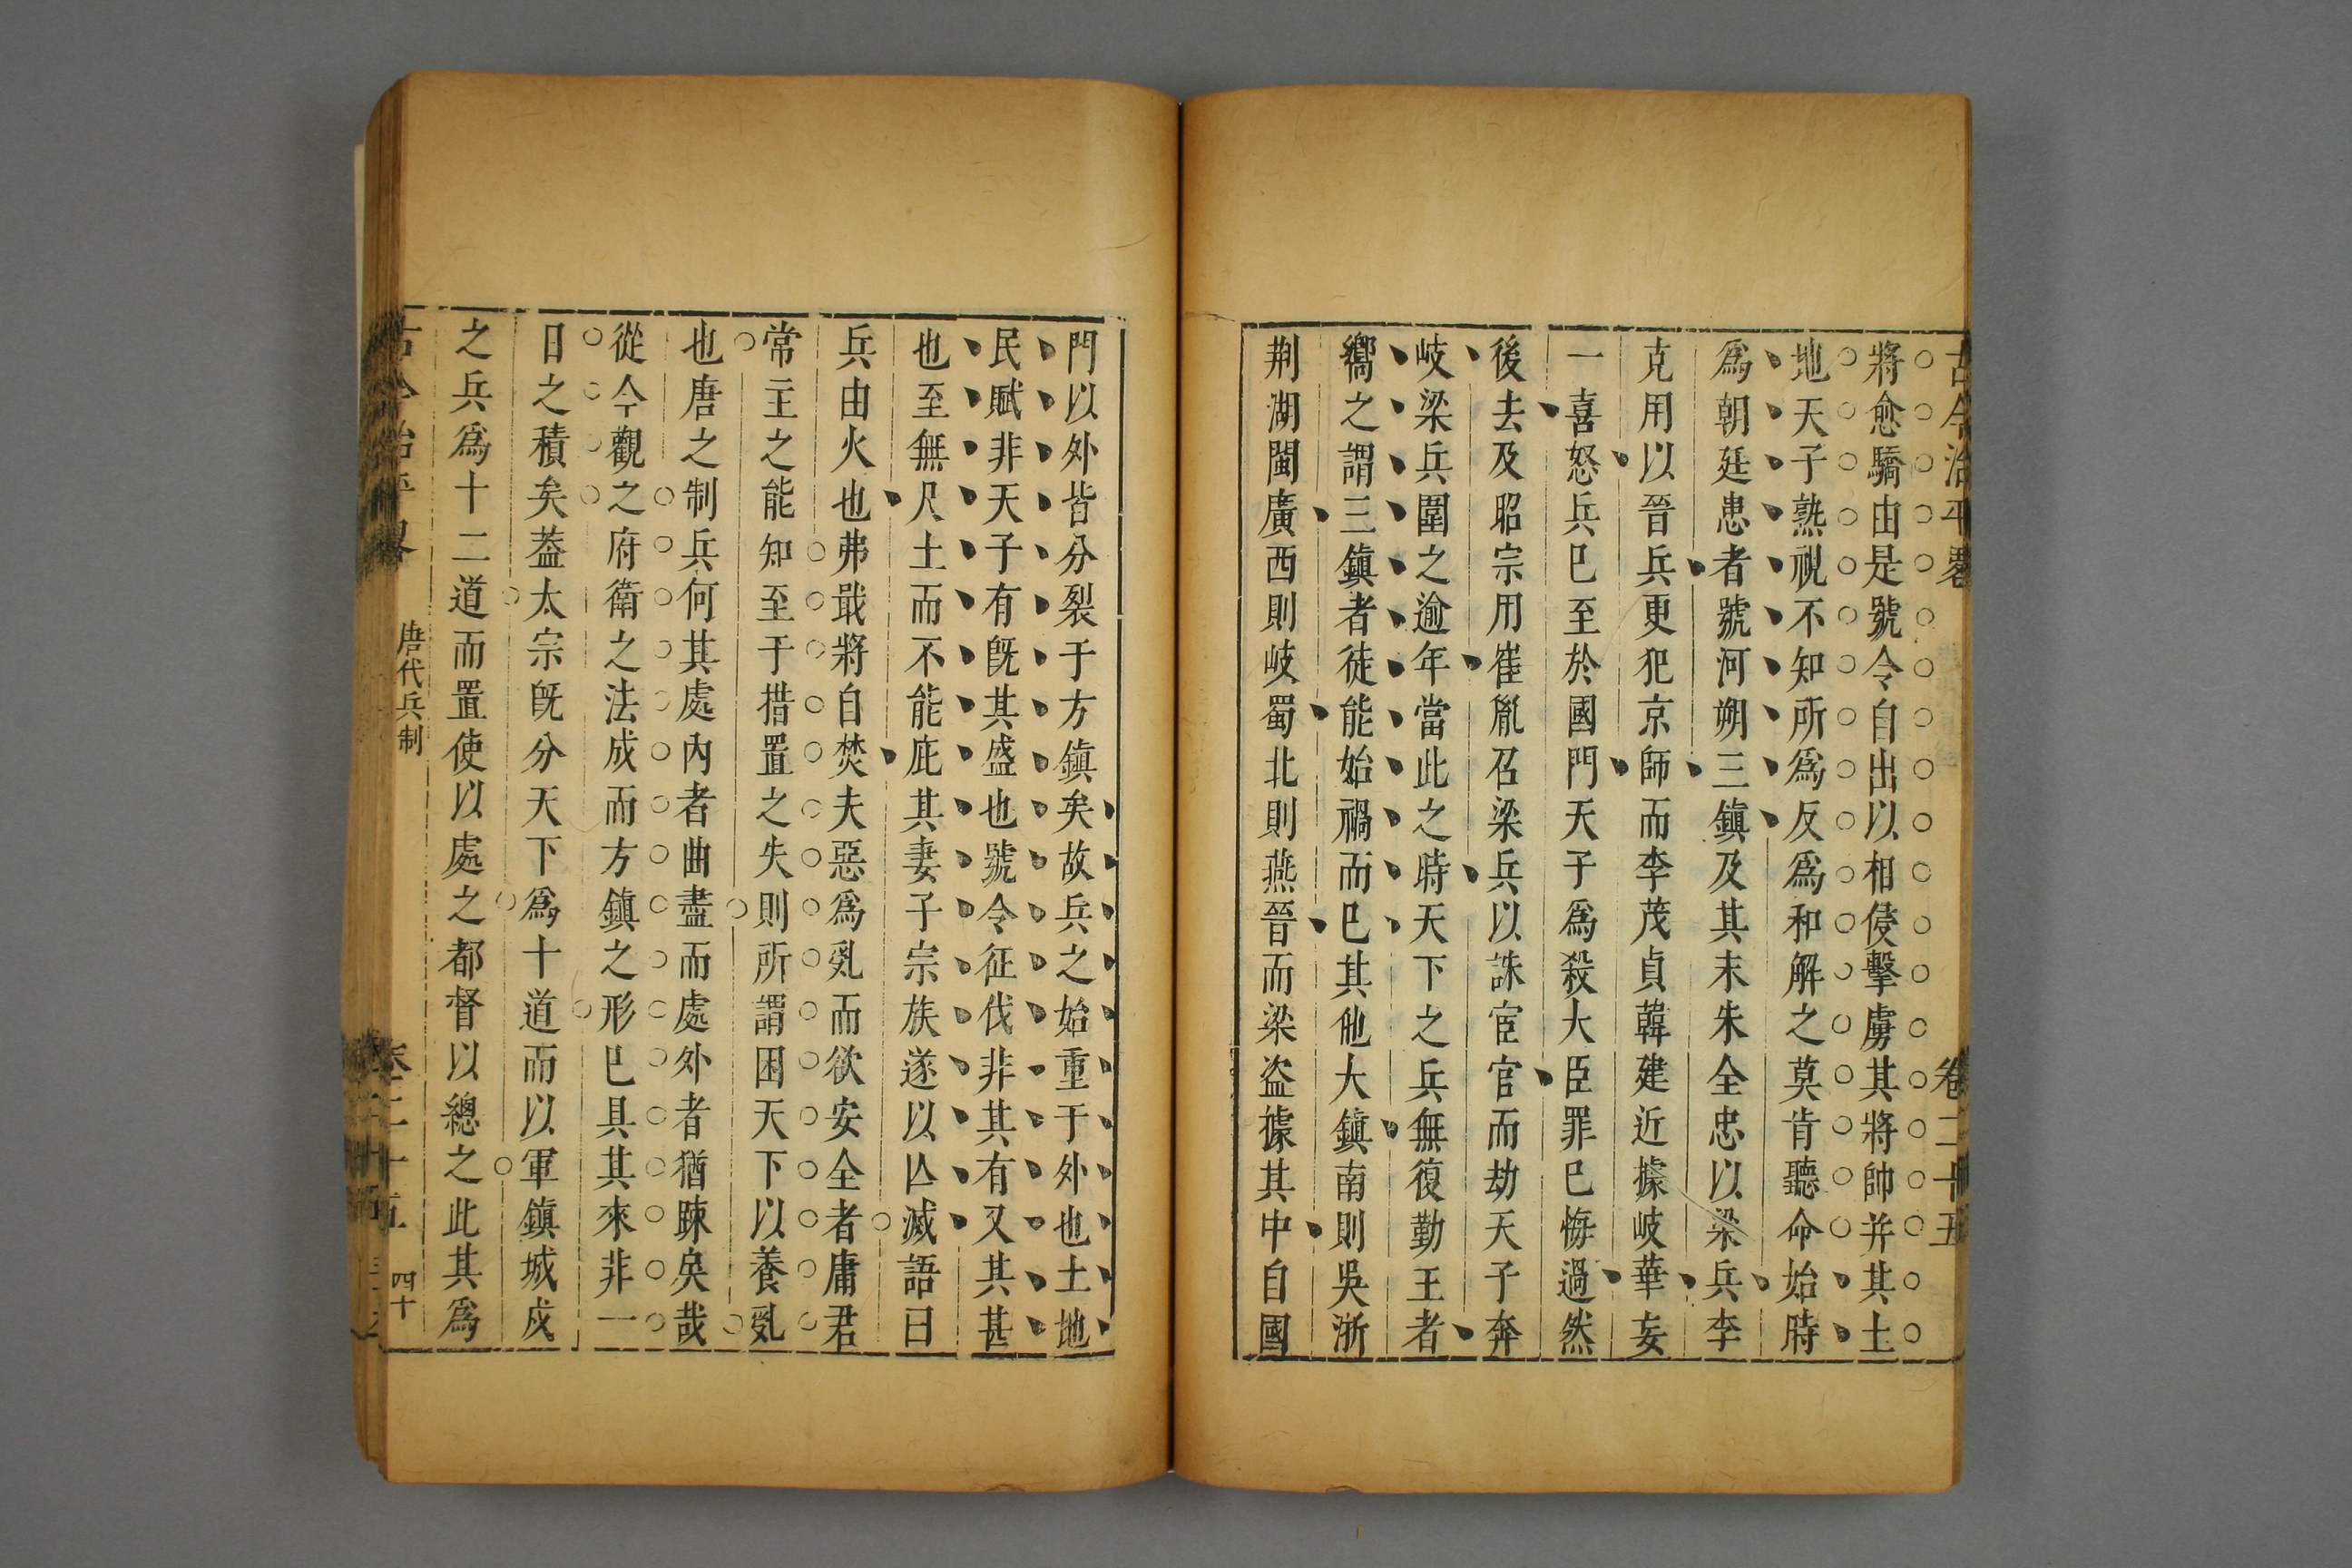 古今治平畧 卷二十五
將愈驕由是號令自出以相侵擊虜其將帥并其土
地天子熟視不知所爲反爲和解之莫肯聽命始時
爲朝廷患者號河朔三鎮及其末朱全忠以梁兵李
克用以晉兵更犯京師而李茂貞韓建近據岐華妄
一喜怒兵已至於國門天子爲殺大臣罪已悔過然
後去及昭宗用崔胤召梁兵以誅宦官而劫天子奔
岐梁兵圍之逾年當此之時天下之兵無復勤王者
嚮之謂三鎮者徒能始禍而已其他大鎮南則吳浙
荆湖閩廣西則岐蜀北則燕晉而梁盗據其中自國
門以外皆分裂于方鎮矣故兵之始重于外也土地
民賦非天子有旣其盛也號令征伐非其有又其甚
也至無尺土而不能庇其妻子宗族遂以亾滅語曰
兵由火也弗戢將自焚夫惡爲亂而欲安全者庸君
常主之能知至于措置之失則所謂困天下以養亂
也唐之制兵何其處內者曲盡而處外者猶踈矣哉
從今觀之府衛之法成而方鎮之形已具其來非一
日之積矣葢太宗旣分天下爲十道而以軍鎮城戍
之兵爲十二道而置使以處之都督以總之此其爲
古今治平畧 唐代兵制 卷二十五 四十